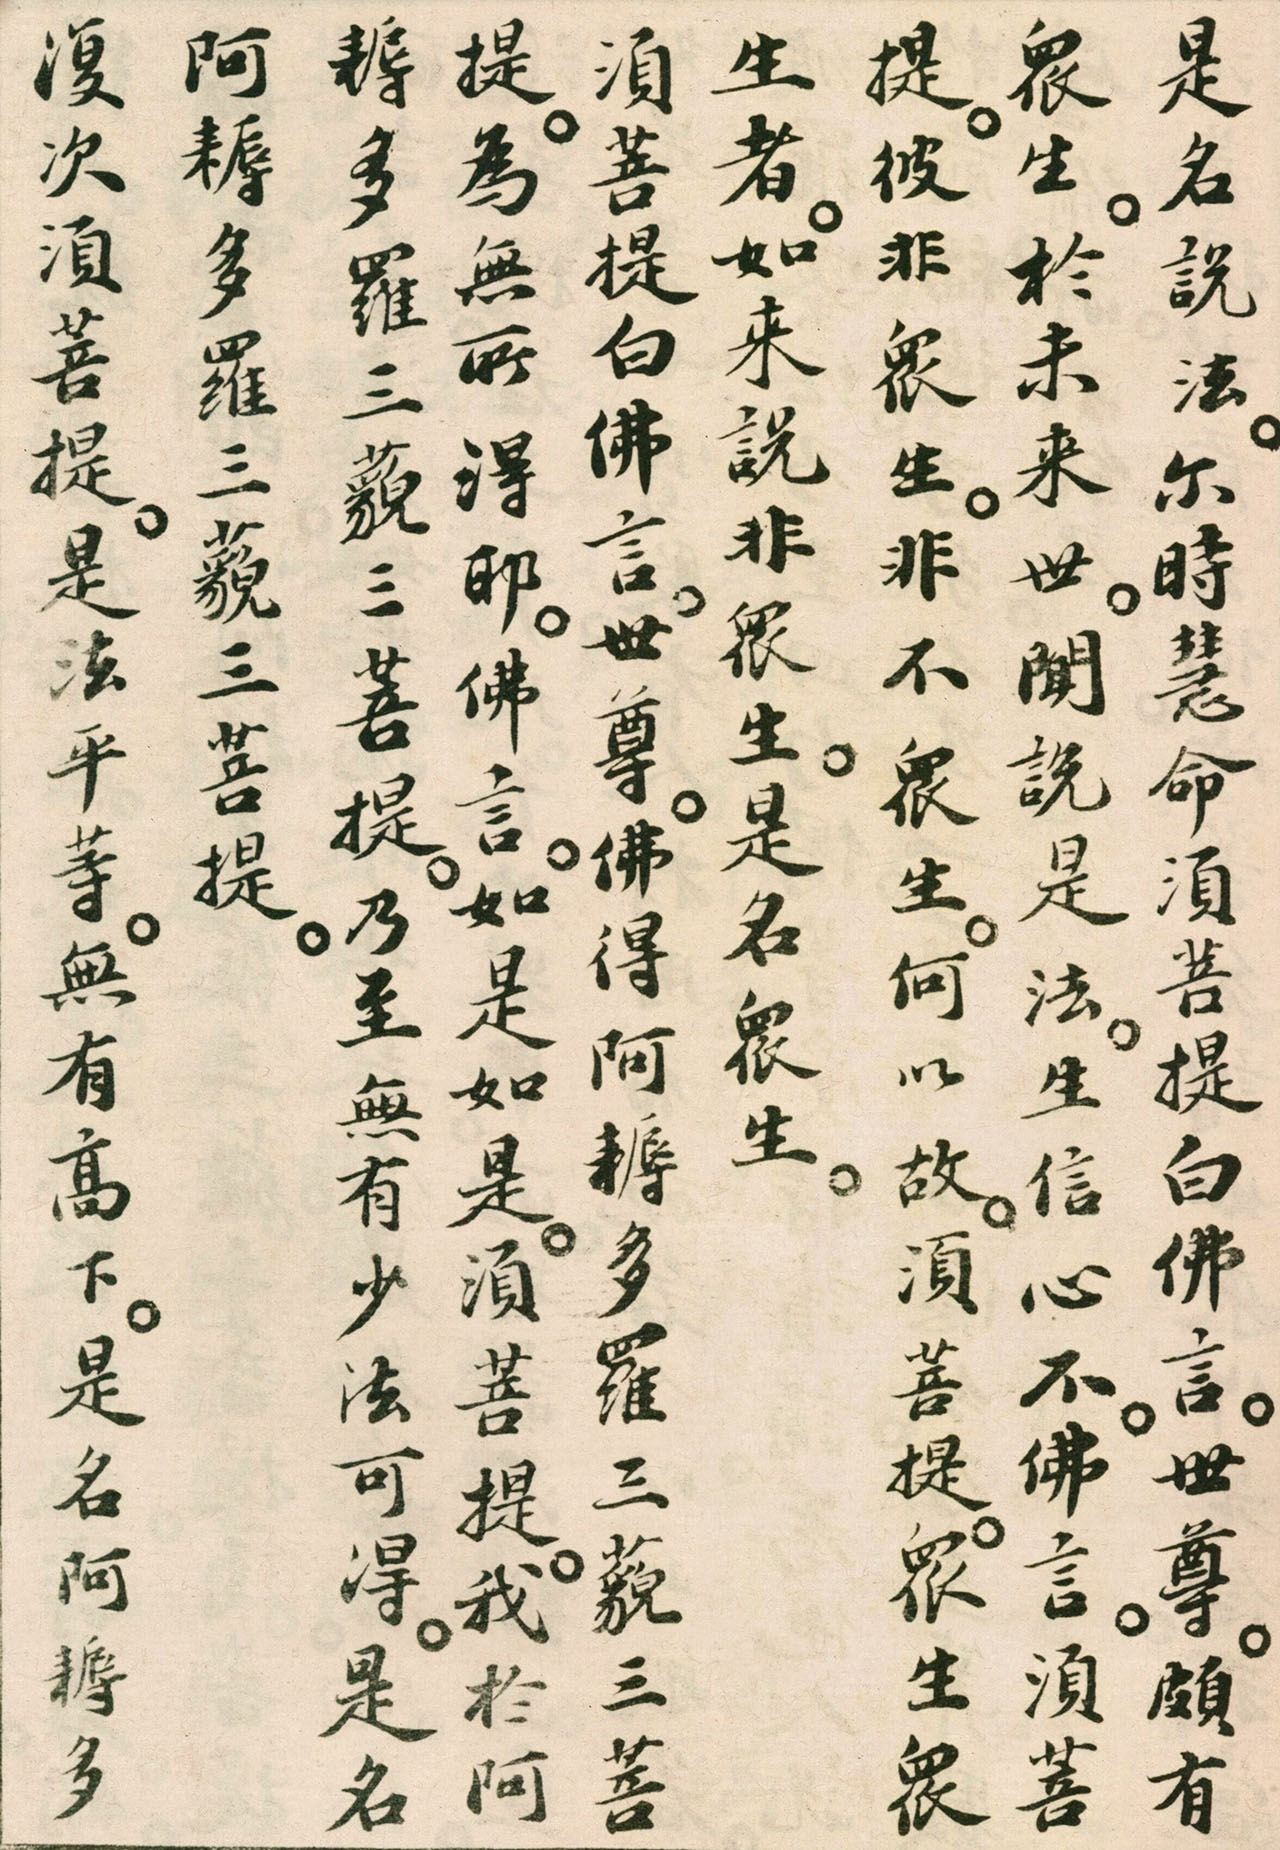 是名說法。尔時慧命須菩提白佛言。世尊。頗有
眾生。於未来世。聞說是法。生信心不。佛言。須菩
提。彼非眾生。非不眾生。何以故。須菩提。眾生眾
生者。如来說非眾生。是名眾生。
須菩提白佛言。世尊。佛得阿耨多羅三藐三菩
提。為無所得耶。佛言。如是如是。須菩提。我於阿
耨多羅三藐三菩提。乃至無有少法可得。是名
阿耨多羅三藐三菩提。
復次須菩提。是法平等。無有高下。是名阿耨多